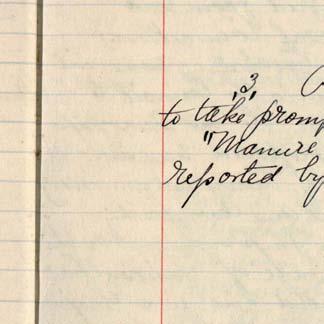 "3"
to take promp
"Manure
reported by